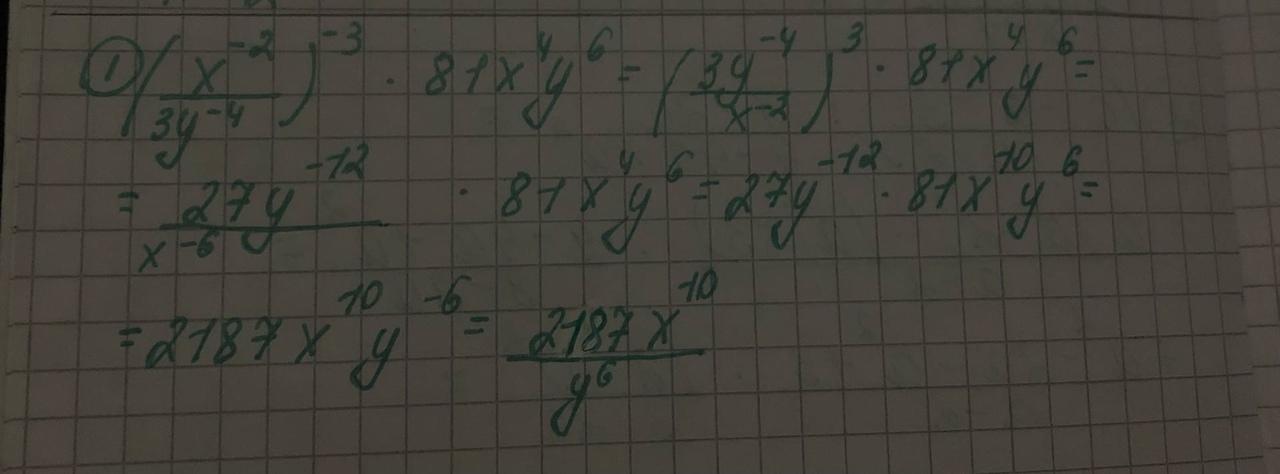 ① (x⁻²/3y⁻⁴)⁻³ · 81x⁴y⁶ = (3y⁻⁴/x⁻²)³ · 81x⁴y⁶ =
= 27y⁻¹²/x⁻⁶ · 81x⁴y⁶ = 27y⁻¹² · 81x¹⁰y⁶ =
= 2187x¹⁰y⁻⁶ = 2187x¹⁰/y⁶